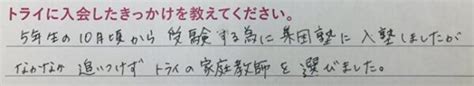 トライに入会したきっかけを教えてください。
5年生の10月頃から受験する為に集団塾に入塾しましたが
なかなか追いつけずトライの家庭教師を選びました。